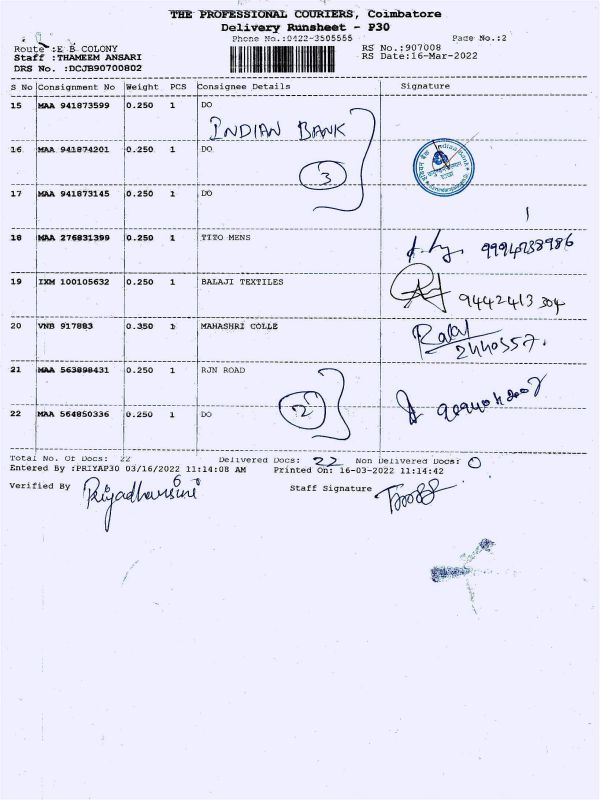 THE PROFESSIONAL COURIERS, Coimbatore
Delivery Runsheet - P30
Phone No.:0422-3505555 Page No.:2
Route :E B COLONY RS No.:907008
Staff :THAMEEM ANSARI RS Date:16-Mar-2022
DRS No. :DCJB90700802
S No Consignment No Weight PCS Consignee Details Signature
15 MAA 941873599 0.250 1 DO
INDIAN BANK
16 MAA 941874201 0.250 1 DO
3
17 MAA 941873145 0.250 1 DO
18 MAA 276831399 0.250 1 TIZO MENS
19 IXM 100105632 0.250 1 BALAJI TEXTILES
9442413304
20 VNB 917883 0.350 1 MAHASHRI COLLE
2440557.
21 MAA 563898431 0.250 1 RJN ROAD
2
22 MAA 564850336 0.250 1 DO
Total No. Of Docs: 22 Delivered Docs: 22 Non Delivered Docs: 0
Entered By :PRIYAP30 03/16/2022 11:14:08 AM Printed On: 16-03-2022 11:14:42
Verified By Priyadharsini Staff Signature